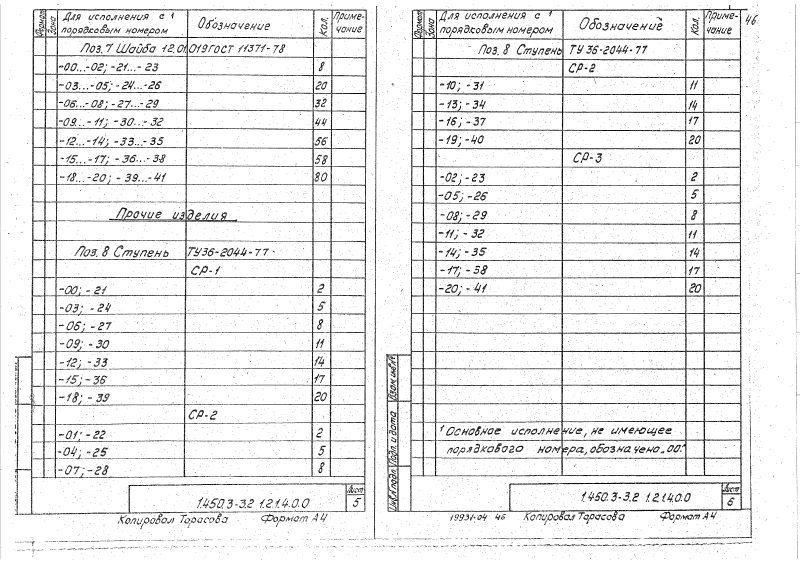 Формат
Зона
Для исполнения с 1 порядковым номером
Обозначение
Кол.
Примечание
Поз. 7 Шайба 12.01.019 ГОСТ 11371-78
-00...-02; -21...-23 8
-03...-05; -24...-26 20
-06...-08; -27...-29 32
-09...-11; -30...-32 44
-12...-14; -33...-35 56
-15...-17; -36...-38 58
-18...-20; -39...-41 80
Прочие изделия
Поз. 8 Ступень ТУ36-2044-77
СР-1
-00; -21 2
-03; -24 5
-06; -27 8
-09; -30 11
-12; -33 14
-15; -36 17
-18; -39 20
СР-2
-01; -22 2
-04; -25 5
-07; -28 8
1.450.3-3.2 1.2.1.4.0.0
Лист
5
Копировал Тарасова Формат А4
46
Формат
Зона
Для исполнения с 1 порядковым номером
Обозначение
Кол.
Примечание
Поз. 8 Ступень ТУ36-2044-77
СР-2
-10; -31 11
-13; -34 14
-16; -37 17
-19; -40 20
СР-3
-02; -23 2
-05; -26 5
-08; -29 8
-11; -32 11
-14; -35 14
-17; -38 17
-20; -41 20
1 Основное исполнение, не имеющее
порядкового номера, обозначено „00".
Взам.инв.№
Подп. и дата
Инв.№ подл.
1.450.3-3.2 1.2.1.4.0.0
Лист
6
19931-04 46 Копировал Тарасова Формат А4